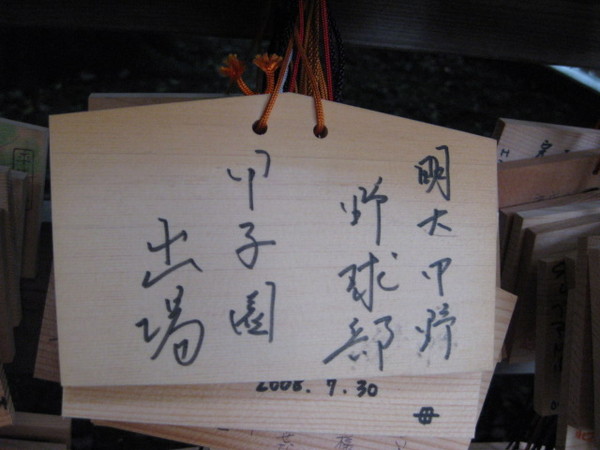 明大中野
野球部
甲子園
出場
2008.7.30
母